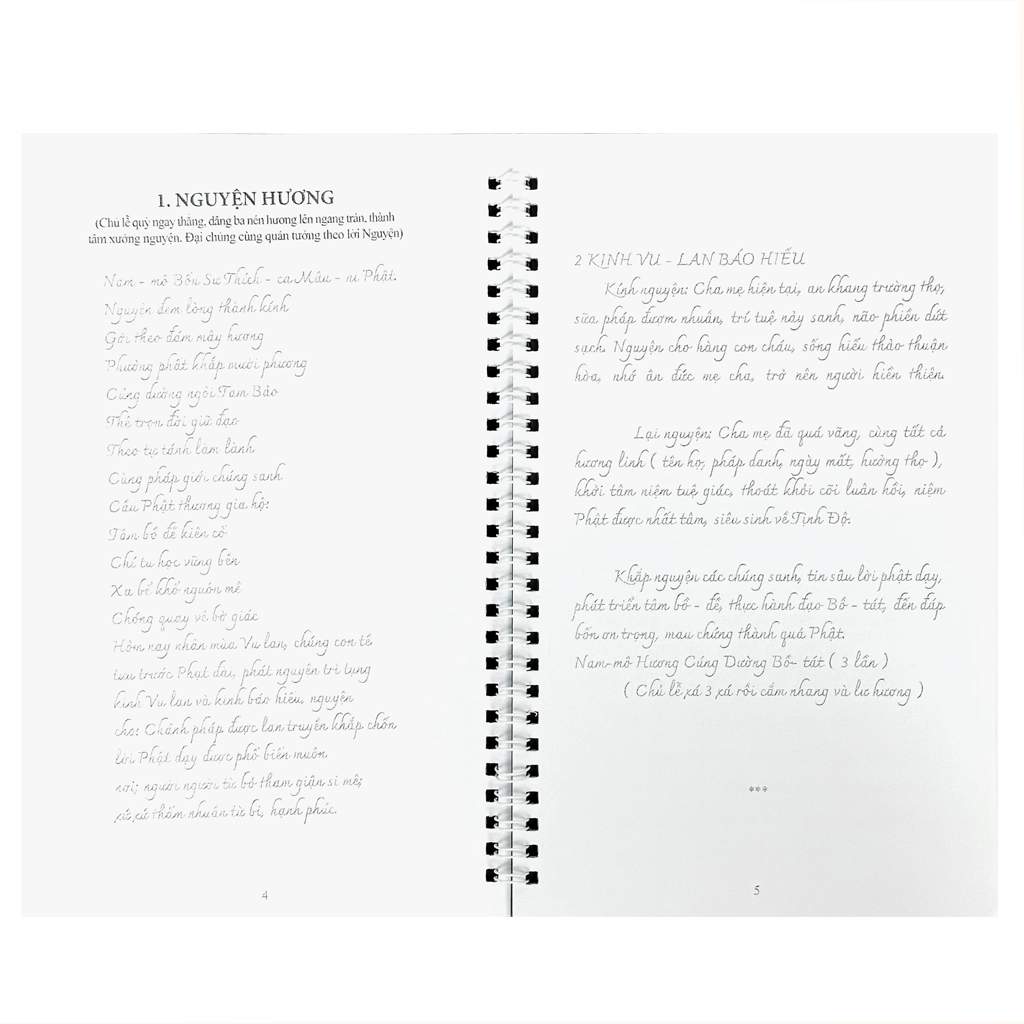 1. NGUYỆN HƯƠNG
(Chủ lễ quỳ ngay thẳng, dâng ba nén hương lên ngang trán, thành
tâm xướng nguyện. Đại chúng cùng quán tưởng theo lời Nguyện)
Nam - mô Bổn Sư Thích - ca Mâu - ni Phật.
Nguyện đem lòng thành kính
Gởi theo đám mây hương
Phưởng phất khắp mười phương
Cúng dường ngôi Tam Bảo
Thề trọn đời giữ đạo
Theo tự tánh làm lành
Cùng pháp giới chúng sanh
Cầu Phật thương gia hộ:
Tâm bồ đề kiên cố
Chí tu học vững bền
Xa bể khổ nguồn mê
Chóng quay về bờ giác
Hôm nay nhân mùa Vu lan, chúng con tề
tựu trước Phật đài, phát nguyện trì tụng
kinh Vu lan và kinh báo hiếu, nguyện
cho: Chánh pháp được lan truyền khắp chốn
lời Phật dạy được phổ biến muôn
nơi; người người từ bỏ tham giận si mê;
xứ xứ thấm nhuần từ bi, hạnh phúc.
4
2 KINH VU - LAN BÁO HIẾU
Kính nguyện: Cha mẹ hiện tại, an khang trường thọ,
sữa pháp đượm nhuần, trí tuệ nảy sanh, não phiền dứt
sạch. Nguyện cho hàng con cháu, sống hiếu thảo thuận
hòa, nhớ ân đức mẹ cha, trở nên người hiền thiện.
Lại nguyện: Cha mẹ đã quá vãng, cùng tất cả
hương linh ( tên họ, pháp danh, ngày mất, hưởng thọ ),
khởi tâm niệm tuệ giác, thoát khỏi cõi luân hồi, niệm
Phật được nhất tâm, siêu sinh về Tịnh Độ.
Khắp nguyện các chúng sanh, tin sâu lời phật dạy,
phát triển tâm bồ - đề, thực hành đạo Bồ - tát, đền đáp
bốn ơn trọng, mau chứng thành quả Phật.
Nam-mô Hương Cúng Dường Bồ- tát ( 3 lần )
( Chủ lễ xá 3 xá rồi cắm nhang vào lư hương )
***
5